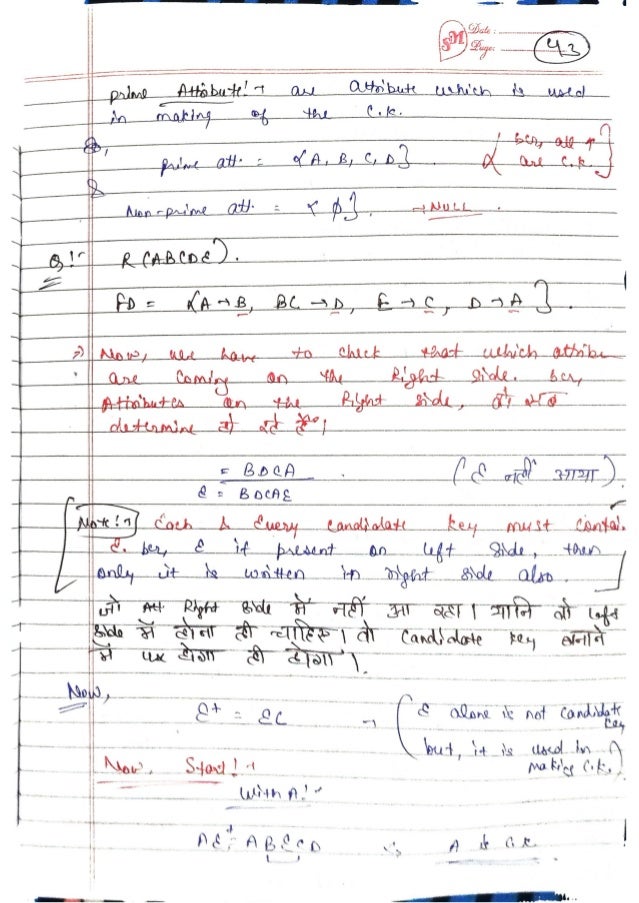 SM Date :
Page:
43
prime Attribute!→ are attribute which is used
in making of the C.K.
So,
prime att. = {A, B, C, D}. { bcz, all are C.K. }
&
Non-prime att. = { ϕ }. → NULL.
Q!- R(ABCDE).
FD = {A→B, BC→D, E→C, D→A}.
⇒ Now, we have to check that which attribu
are coming on the Right side. bcz,
Attributes on the Right side, वो सब
determine हो रहे हैं।
= BDCA (E नहीं आया)
E = BDCAE
Note!→ Each & Every candidate key must contai.
E. bcz, E if present on left side, then
only it is written in right side also.
जो Att Right side में नहीं आ रहा। यानि वो left
side में होना ही चाहिए। तो Candidate key बनाने
में use होगा ही होगा।
Now,
E⁺ = EC → (E alone is not candidate key
but, it is used in making C.K.)
Now, Start!→
With A!-
AE⁺ = ABECD ∴ A is C.K